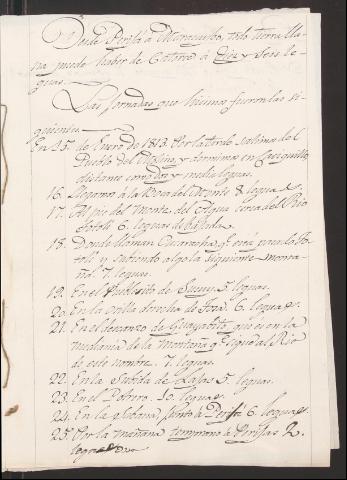 Desde Perijá à Maracaibo, todo tierra lla-
na puede haber de Catorce à Diez y Seis le-
guas.
Las jornadas que hicimos fueron las si-
guientes.
En 15 de Enero de 1813. Por la tarde salimos del
Pueblo del Molino, y dormimos en
distante como dos y media leguas.
16. Llegamos à la Boca del Monte 8 leguas.
17. Al pie del monte del Agua cerca del Rio
6. leguas de bajada.
18. Donde llaman Cucaracha, qe. está pasado
y subiendo algo la siguiente monta-
ña. 7. leguas.
19. En el Pueblesito de 5. leguas.
20. En la orilla derecha de 6. leguas.
21. En el descanso de Guayabito, que es en la
mediania de la Montaña qe. sigue al Rio
de este nombre. 7. leguas.
22. En la Subida de Lajas 5. leguas.
23. En el Potrero. 10. leguas.
24. En la Sabana, junto à Perijá 6. leguas.
25. Por la mañana temprano à Perijas 2.
leguas